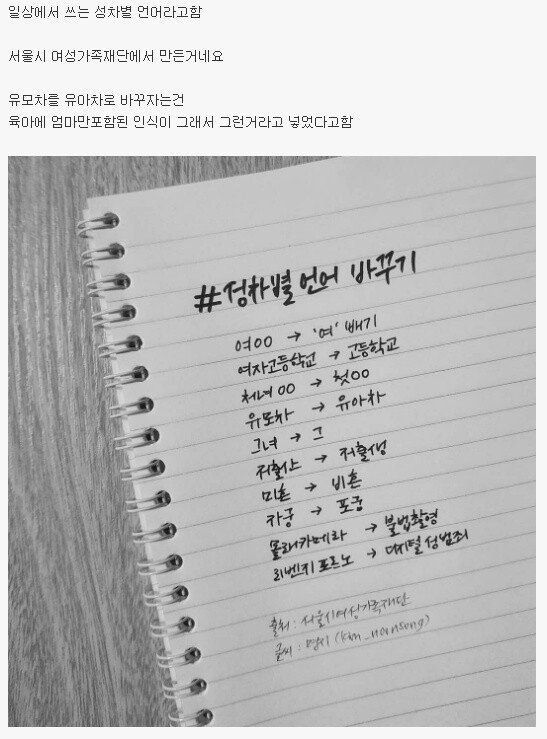 일상에서 쓰는 성차별 언어라고함
서울시 여성가족재단에서 만든거네요
유모차를 유아차로 바꾸자는건
육아에 엄마만포함된 인식이 그래서 그런거라고 넣었다고함
#성차별 언어 바꾸기
여OO → '여' 빼기
여자고등학교 → 고등학교
처녀OO → 첫OO
유모차 → 유아차
그녀 → 그
저출산 → 저출생
미혼 → 비혼
자궁 → 포궁
몰래카메라 → 불법촬영
리벤지 포르노 → 디지털 성범죄
출처 : 서울시여성가족재단
글씨 :